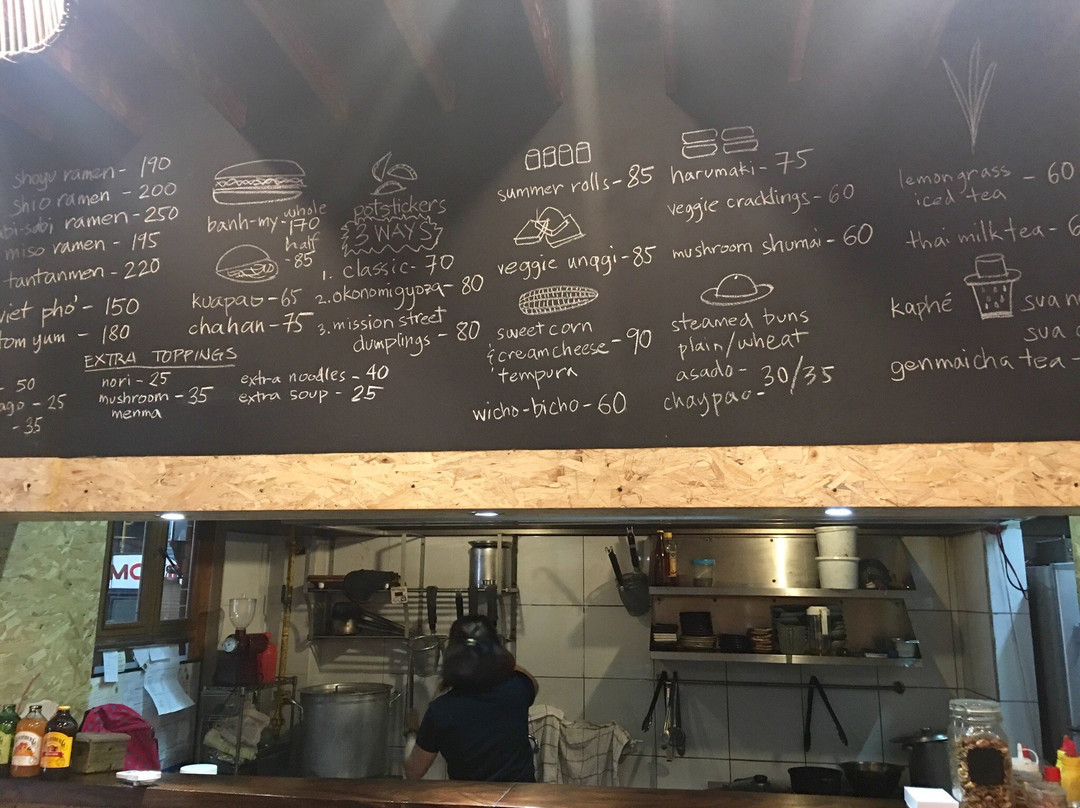 shoyu ramen - 190
shio ramen - 200
abi-sabi ramen - 250
miso ramen - 195
tantanmen - 220
viet pho' - 150
tom yum - 180
EXTRA TOPPINGS
- 50
ago - 25
- 35
nori - 25
mushroom - 35
menma
extra noodles - 40
extra soup - 25
banh-my - whole
170
half
- 85
kuapao - 65
chahan - 75
potstickers
3 WAYS
1. classic - 70
2. okonomigyoza - 80
3. mission street
dumplings - 80
summer rolls - 85
veggie unagi - 85
sweet corn
& cream cheese - 90
tempura
wicho-bicho - 60
harumaki - 75
veggie cracklings - 60
mushroom shumai - 60
steamed buns
plain/wheat
asado - 30/35
chaypao -
lemongrass - 60
iced tea
thai milk tea - 6
kaphé
sua
sua
genmaicha tea -
MC